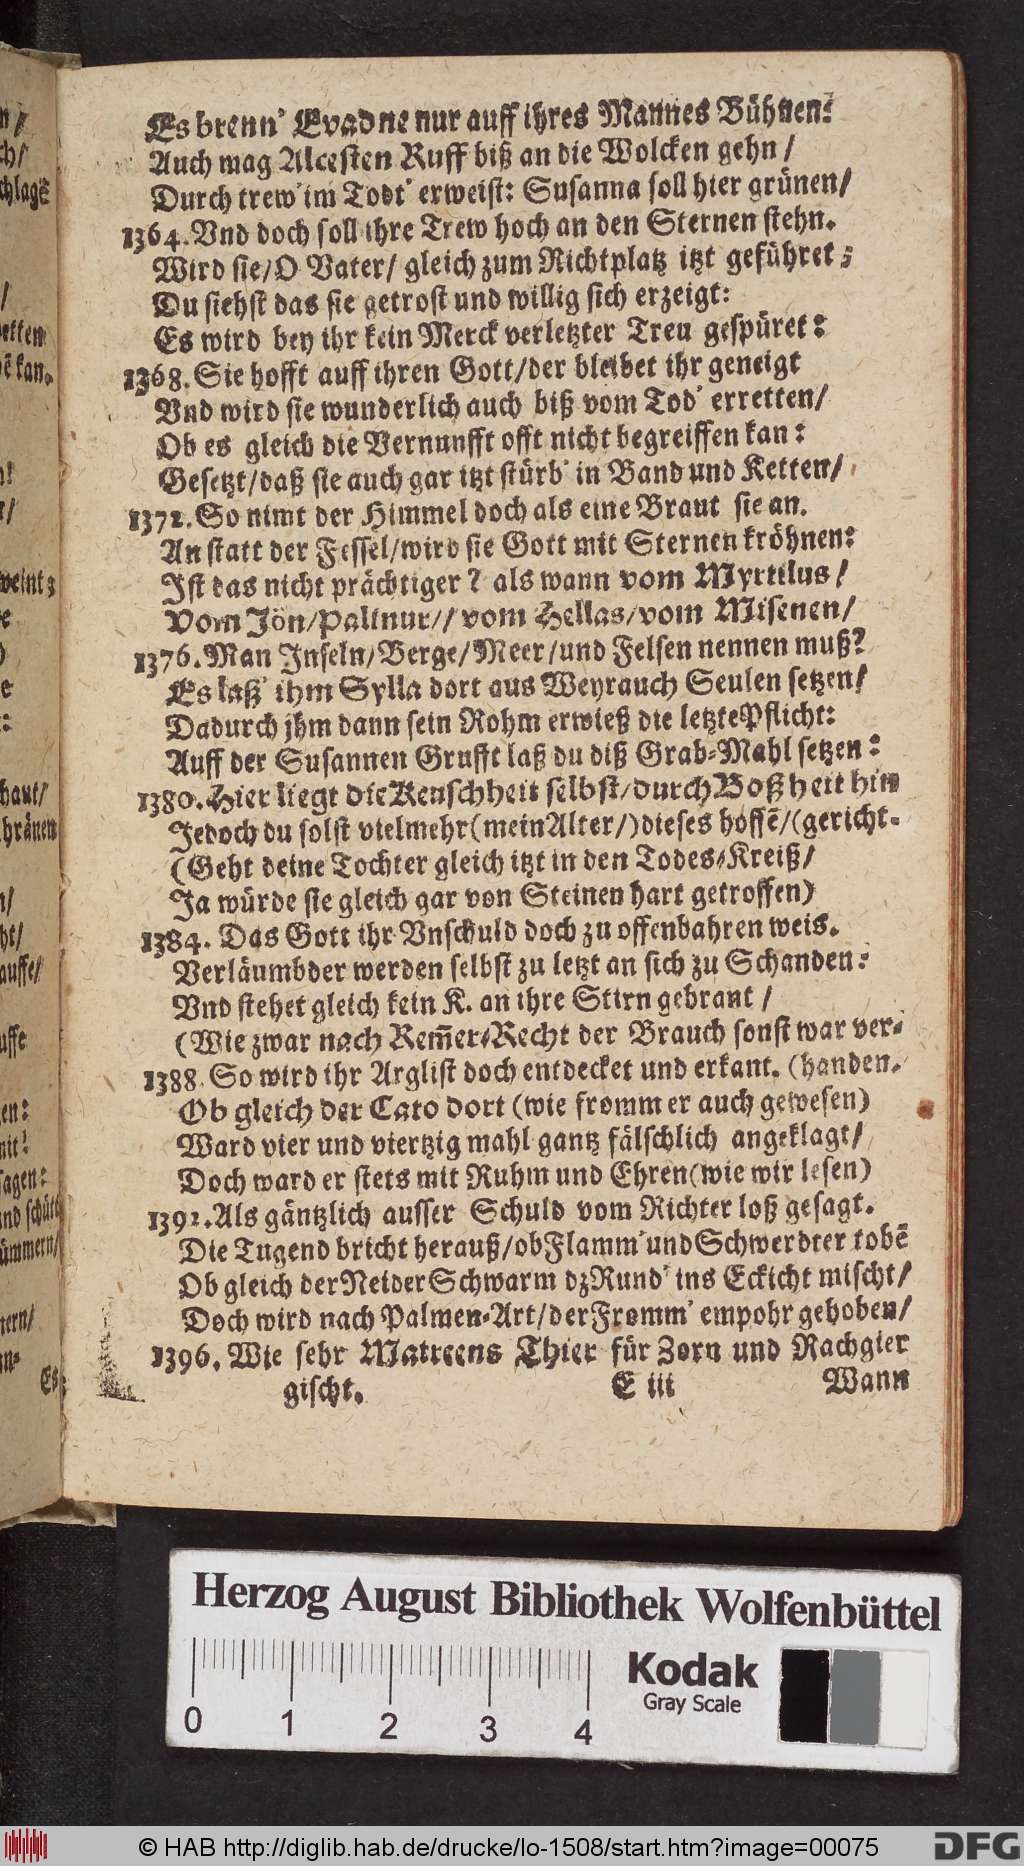 Es brenn' Evadne nur auff ihres Mannes Bühnen:
Auch mag Alcesten Ruff biß an die Wolcken gehn /
Durch trew' im Todt' erweist: Susanna soll hier grünen/
1364. Vnd doch soll ihre Trew hoch an den Sternen stehn.
Wird sie/ O Vater/ gleich zum Richtplatz itzt geführet;
Du siehst das sie getrost und willig sich erzeigt:
Es wird bey ihr kein Merck verletzter Treu gespüret:
1368. Sie hofft auff ihren Gott/ der bleibet ihr geneigt
Vnd wird sie wunderlich auch biß vom Tod' erretten/
Ob es gleich die Vernunfft offt nicht begreiffen kan:
Gesetzt/ daß sie auch gar itzt stürb' in Band und Ketten/
1372. So nimt der Himmel doch als eine Braut sie an.
An statt der Fessel/ wird sie Gott mit Sternen kröhnen:
Ist das nicht prächtiger? als wann vom Myrtilus/
Vom Jön/ Palinur// vom Hellas/ vom Misenen/
1376. Man Inseln/ Berge/ Meer/ und Felsen nennen muß?
Es laß' ihm Sylla dort aus Weyrauch Seulen setzen/
Dadurch jhm dann sein Rohm erwieß die letzte Pflicht:
Auff der Susannen Grufft laß du diß Grab-Mahl setzen:
1380. Hier liegt die Keuschheit selbst/ durch Boßheit hin
Jedoch du solst vielmehr (mein Alter/) dieses hoffē/ (gericht.
(Geht deine Tochter gleich itzt in den Todes-Kreiß/
Ja würde sie gleich gar von Steinen hart getroffen)
1384. Das Gott ihr Vnschuld doch zu offenbahren weis.
Verläumbder werden selbst zu letzt an sich zu Schanden:
Vnd stehet gleich kein K. an ihre Stirn gebrant /
(Wie zwar nach Rem̄er-Recht der Brauch sonst war ver-
1388. So wird ihr Arglist doch entdecket und erkant. (handen.
Ob gleich der Cato dort (wie fromm er auch gewesen)
Ward vier und viertzig mahl gantz fälschlich angeklagt/
Doch ward er stets mit Ruhm und Ehren (wie wir lesen)
1392. Als gäntzlich ausser Schuld vom Richter loß gesagt.
Die Tugend bricht herauß/ ob Flamm' und Schwerdter tobē
Ob gleich der Neider Schwarm dz Rund' ins Eckicht mischt/
Doch wird nach Palmen-Art/ der Fromm' empohr gehoben/
1396. Wie sehr Matreens Thier für Zorn und Rachgier
gischt. E iii Wann
Herzog August Bibliothek Wolfenbüttel
0 1 2 3 4
Kodak
Gray Scale
© HAB http://diglib.hab.de/drucke/lo-1508/start.htm?image=00075
DFG